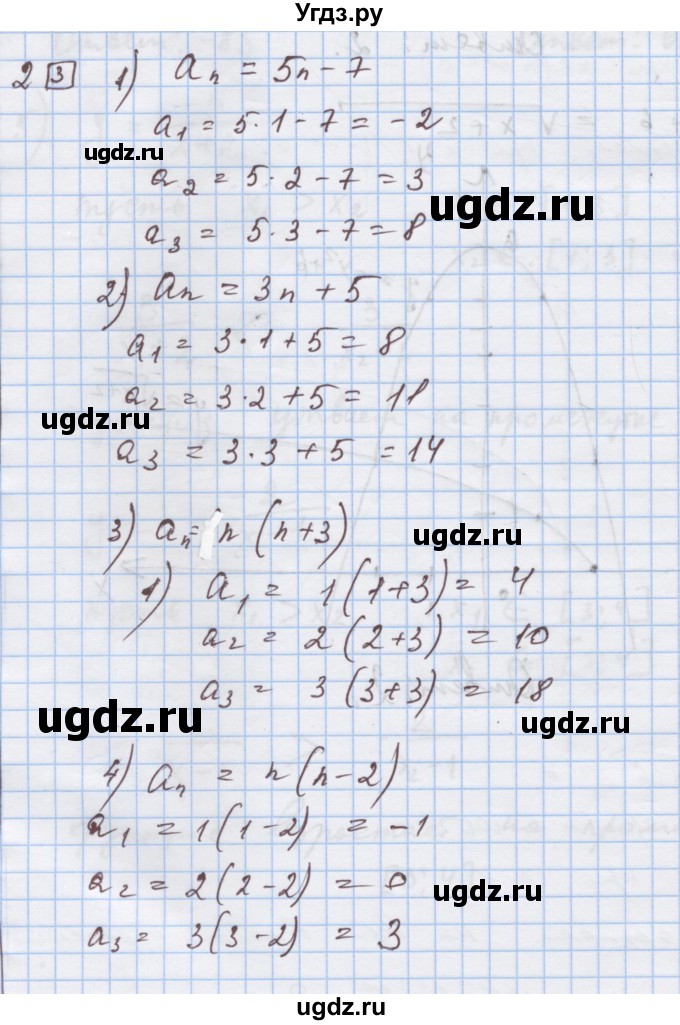 Угдз.ру
2 3 1) aₙ = 5n - 7
a₁ = 5·1 - 7 = -2
ugdz.ru
a₂ = 5·2 - 7 = 3
ugdz.ru
a₃ = 5·3 - 7 = 8
2) aₙ = 3n + 5
a₁ = 3·1 + 5 = 8
a₂ = 3·2 + 5 = 11
ugdz.ru
a₃ = 3·3 + 5 = 14
3) aₙ = n (n+3)
ugdz.ru
1) a₁ = 1(1+3) = 4
a₂ = 2(2+3) = 10
a₃ = 3(3+3) = 18
ugdz.ru
ugdz.ru
4) aₙ = n(n-2)
a₁ = 1(1-2) = -1
a₂ = 2(2-2) = 0
ugdz.ru
a₃ = 3(3-2) = 3
ugdz.ru